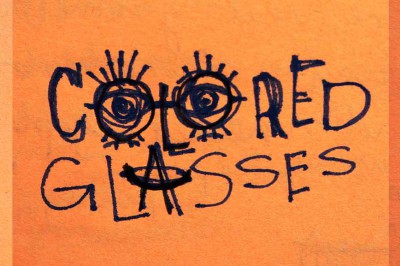 COLORED
GLASSES